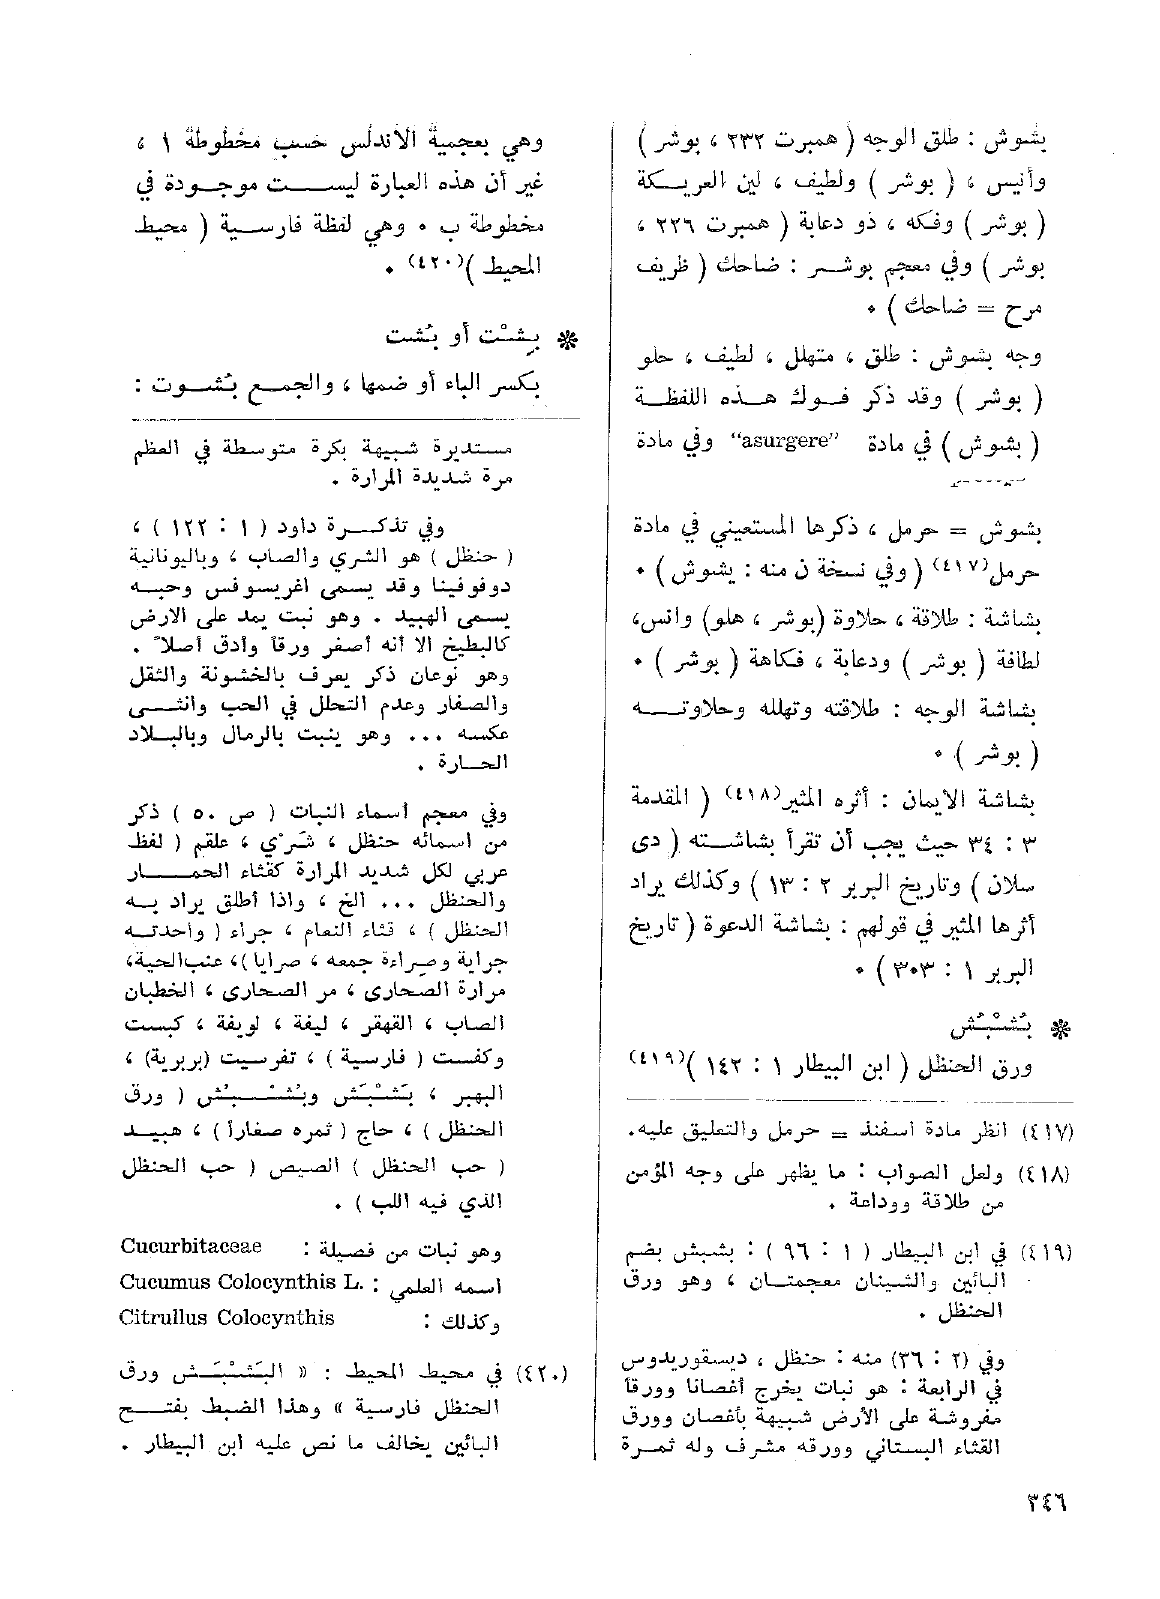 بشوش : طلق الوجه ( همبرت ٢٣٢ ، بوشر )
وأنيس ، ( بوشر ) ولطيف ، لين العريكة
( بوشر ) وفكه ، ذو دعابة ( همبرت ٢٢٦ ،
بوشر ) وفي معجم بوشر : ضاحك ( ظريف
مرح = ضاحك ) ٠
وجه بشوش : طلق ، متهلل ، لطيف ، حلو
( بوشر ) وقد ذكر فوك هذه اللفظة
( بشوش ) في مادة “asurgere” وفي مادة
بشوش = حرمل ، ذكرها المستعيني في مادة
حرمل(٤١٧) ( وفي نسخة ن منه : يشوش ) ٠
بشاشة : طلاقة ، حلاوة (بوشر ، هلو) وانس،
لطافة ( بوشر ) ودعابة ، فكاهة ( بوشر ) ٠
بشاشة الوجه : طلاقته وتهلله وحلاوته
( بوشر ) ٠
بشاشة الايمان : أثره المثير(٤١٨) ( المقدمة
٣ : ٣٤ حيث يجب أن تقرأ بشاشته ( دي
سلان ) وتاريخ البربر ٢ : ١٣ ) وكذلك يراد
أثرها المثير في قولهم : بشاشة الدعوة ( تاريخ
البربر ١ : ٣٠٣ ) ٠
❋ بُشْبُش
ورق الحنظل ( ابن البيطار ١ : ١٤٢ )(٤١٩)
(٤١٧) انظر مادة اسفند = حرمل والتعليق عليه.
(٤١٨) ولعل الصواب : ما يظهر على وجه المؤمن
من طلاقة ووداعة .
(٤١٩) في ابن البيطار ( ١ : ٩٦ ) : بشبش بضم
البائين والشينان معجمتان ، وهو ورق
الحنظل .
وفي (٢ : ٣٦) منه : حنظل ، ديسقوريدوس
في الرابعة : هو نبات يخرج أغصانا وورقا
مفروشة على الأرض شبيهة بأغصان وورق
القثاء البستاني وورقه مشرف وله ثمرة
وهي بعجمية الاندلس حسب مخطوطة ١ ،
غير أن هذه العبارة ليست موجودة في
مخطوطة ب ٠ وهي لفظة فارسية ( محيط
المحيط )(٤٢٠) ٠
❋ بِشْت أو بُشت
بكسر الباء أو ضمها ، والجمع بُشوت :
مستديرة شبيهة بكرة متوسطة في العظم
مرة شديدة المرارة .
وفي تذكرة داود ( ١ : ١٢٢ ) ،
( حنظل ) هو الشري والصاب ، وباليونانية
دوفوفينا وقد يسمى اغريسوفس وحبه
يسمى الهبيد . وهو نبت يمد على الارض
كالبطيخ الا أنه أصغر ورقا وأدق أصلاً .
وهو نوعان ذكر يعرف بالخشونة والثقل
والصغار وعدم التحلل في الحب وانثى
عكسه ... وهو ينبت بالرمال وبالبلاد
الحارة .
وفي معجم أسماء النبات ( ص ٥٠ ) ذكر
من اسمائه حنظل ، شَرْي ، علقم ( لفظ
عربي لكل شديد المرارة كقثاء الحمار
والحنظل ... الخ ، واذا أطلق يراد به
الحنظل ) ، قثاء النعام ، جراء ( واحدته
جراية وصراءة جمعه ، صرايا )، عنب الحية،
مرارة الصحارى ، مر الصحارى ، الخطبان
الصاب ، القهقر ، ليفة ، لويفة ، كبست
وكفست ( فارسية ) ، تفرسيت (بربرية) ،
الهبير ، بَشْبَش وبُشْبُش ( ورق
الحنظل ) ، حاج ( ثمره صغاراً ) ، هبيد
( حب الحنظل ) الصيص ( حب الحنظل
الذي فيه اللب ) .
وهو نبات من فصيلة : Cucurbitaceae
اسمه العلمي : Cucumus Colocynthis L.
وكذلك : Citrullus Colocynthis
(٤٢٠) في محيط المحيط : « البَشْبَش ورق
الحنظل فارسية » وهذا الضبط بفتح
البائين يخالف ما نص عليه ابن البيطار .
٣٤٦